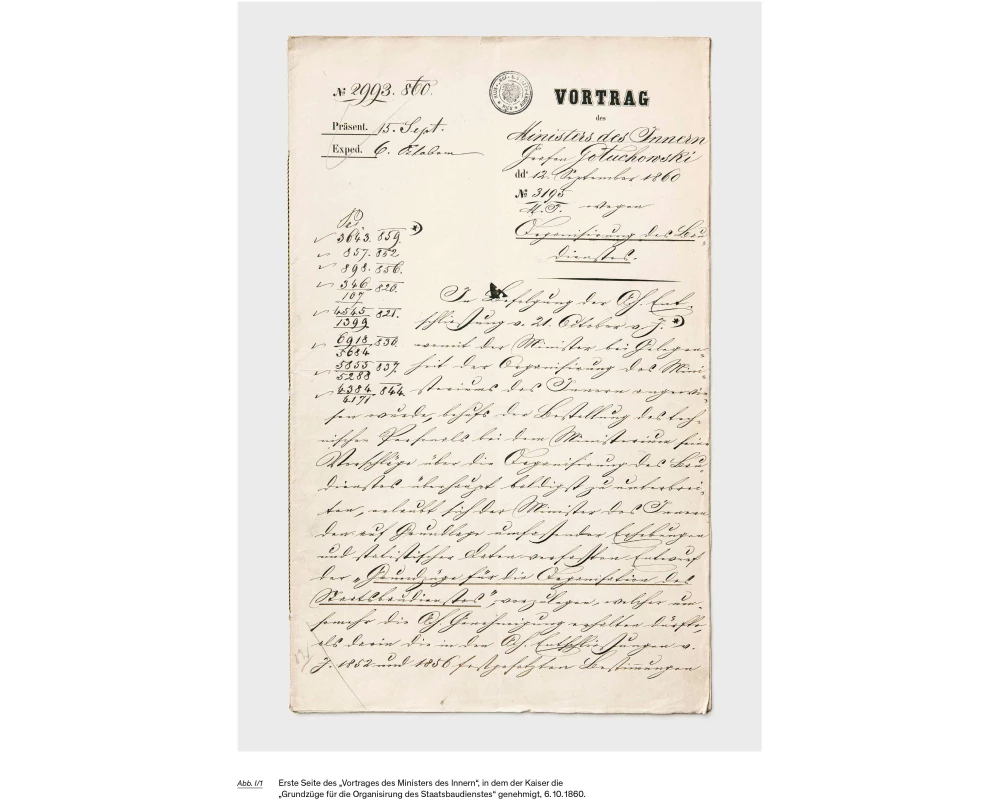 № 2993. 860.
Präsent. 15. Sept.
Exped. 6. October
VORTRAG
des
Ministers des Innern
Grafen Gołuchowski
dd° 12. September 1860
№ 3195
M. I. wegen
Organisirung des Bau-
dienstes.
3643. 859.
857. 852
898. 856.
346 820.
107
4545 821.
1399
6918 836.
5684
5855 837.
5288
4384 844.
4171
In Befolgung der Ah. Ent-
schließung v. 21. October v. J.
womit der Minister bei Gelegen-
heit der Organisirung des Mini-
steriums des Innern angewie-
sen wurde, behufs der Bestellung des tech-
nischen Personals bei dem Ministerium seine
Vorschläge über die Organisirung des Bau-
dienstes überhaupt baldigst zu unterbrei-
ten, erlaubt sich der Minister des Innern
den auf Grundlage umfassender Erhebungen
und statistischer Daten verfaßten Entwurf
der „Grundzüge für die Organisation des
Staatsbaudienstes“, vorzulegen, welcher um-
somehr die Ah. Genehmigung erhalten dürfte,
als darin die in den Ah. Entschließungen v.
J. 1852 und 1856 festgesetzten Bestimmungen
Abb. I/1 Erste Seite des „Vortrages des Ministers des Innern“, in dem der Kaiser die
„Grundzüge für die Organisirung des Staatsbaudienstes“ genehmigt, 6.10.1860.